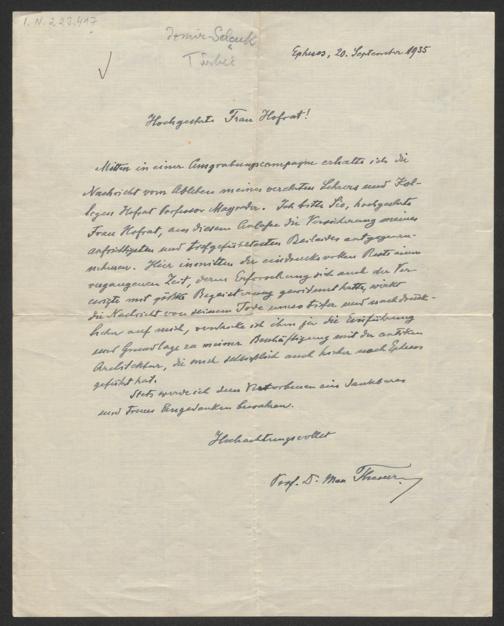 I. N. 223.417
Izmir-Selcuk
Türkei
Ephesos, 20. September 1935
Hochgeehrte Frau Hofrat!
Mitten in einer Ausgrabungscampagne erhalte ich die
Nachricht vom Ableben meines verehrten Lehrers und Kol-
legen Hofrat Professor Mayreder. Ich bitte Sie, hochgeehrte
Frau Hofrat, aus diesem Anlasse die Versicherung meines
aufrichtigsten und tiefgefühltesten Beileides entgegen-
nehmen. Hier inmitten der eindrucksvollen Reste einer
vergangenen Zeit, deren Erforschung sich auch der Ver-
ewigte mit größter Begeisterung gewidmet hatte, wirkt
die Nachricht von seinem Tode umso tiefer und nachdrück-
licher auf mich, verdanke ich ihm ja die Einführung
und Grundlage zu meiner Beschäftigung mit der antiken
Architektur, die mich schließlich auch hierher nach Ephesos
geführt hat.
Stets werde ich dem Verstorbenen ein dankbares
und treues Angedenken bewahren.
Hochachtungsvollst
Prof. Dr. Max Theuer